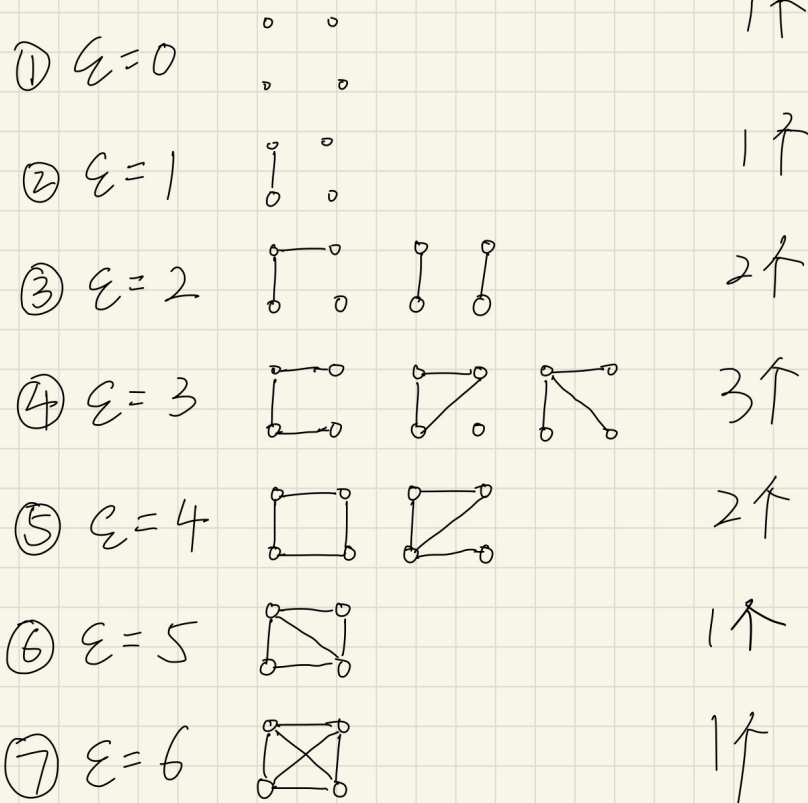 ① ε=0 1个
② ε=1 1个
③ ε=2 2个
④ ε=3 3个
⑤ ε=4 2个
⑥ ε=5 1个
⑦ ε=6 1个